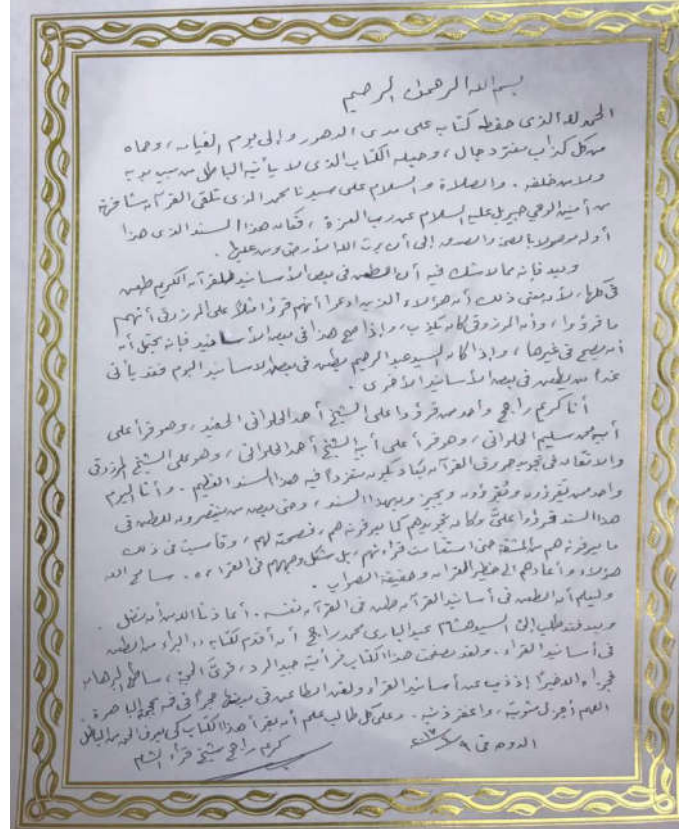 بسم الله الرحمن الرحيم
الحمد لله الذي حفظ كتابه على مدى الدهور وإلى يوم القيامة، وحماه
من كل كذاب مفتر دجال، وجعله الكتاب الذي لا يأتيه الباطل من بين يديه
ولا من خلفه. والصلاة والسلام على سيدنا محمد الذي تلقى القرآن مشافهة
من أمين الوحي جبريل عليه السلام عن رب العزة، فكان هذا السند الذي هذا
أوله موصولا بالصحة والصدق إلى أن يرث الله الأرض ومن عليها.
وبعد فإنه مما لا شك فيه أن الطعن في بعض الأسانيد للقرآن الكريم طعن
في كلها، لأن معنى ذلك أن هؤلاء الذين ادعوا أنهم قرؤوا مثلاً على المرزوقي أنهم
ما قرؤوا، وأن المرزوقي كان يكذب، وإذا صح هذا في بعض الأسانيد فإنه يحتمل أنه
يصح في غيرها، وإذا كان السيد عبد الرحيم يطعن في بعض الأسانيد اليوم فقد يأتي
غداً من يطعن في بعض الأسانيد الأخرى.
أنا كريم راجح واحد من قرؤوا على الشيخ أحمد الحلواني الحفيد، وهو قرأ على
أبيه محمد سليم الحلواني، وهو قرأ على أبيه الشيخ أحمد الحلواني، وهو على الشيخ المرزوقي
والاتقان في تجويد حروف القرآن يكاد يكون متفرداً فيه هذا السند العظيم. وأنا اليوم
واحد من يقرؤون ويُقرؤون ويجيزون بهذا السند، وحتى بعض من ينتصرون للطعن في
هذا السند قرؤوا عليَّ وكان تجويدهم كما يعرفونه هم، فصححته لهم، وقاسيت في ذلك
ما يعرفونه هم من المشقة حتى استقامت قراءتهم، بل شكل وجههم في القراءة. سامح الله
هؤلاء وأعادهم إلى حظيرة القرآن وحقيقة الصواب.
وليعلم أن الطعن في أسانيد القرآن طعن في القرآن نفسه. أعاذنا الله من أن نضل
وبعد فقد طلب إليّ السيد هشام عبد الباري محمد راجح أن أقدم لكتابه رد البراء من الطعن
في أسانيد القراء. ولقد تصفحت هذا الكتاب فرأيته جيد الرد، قويّ الحجة، ساطع البرهان
فجزاه الله خيراً إذ ذب عن أسانيد القراء ولقن الطاعن في بعضها حجراً في فمه بحجته الباهرة
اللهم أجزل مثوبته، واغفر ذنبه. وعلى كل طالب علم أن يقرأ هذا الكتاب كي يعرف الحق من الباطل
الدوحة في ٩
كريم راجح شيخ قراء الشام